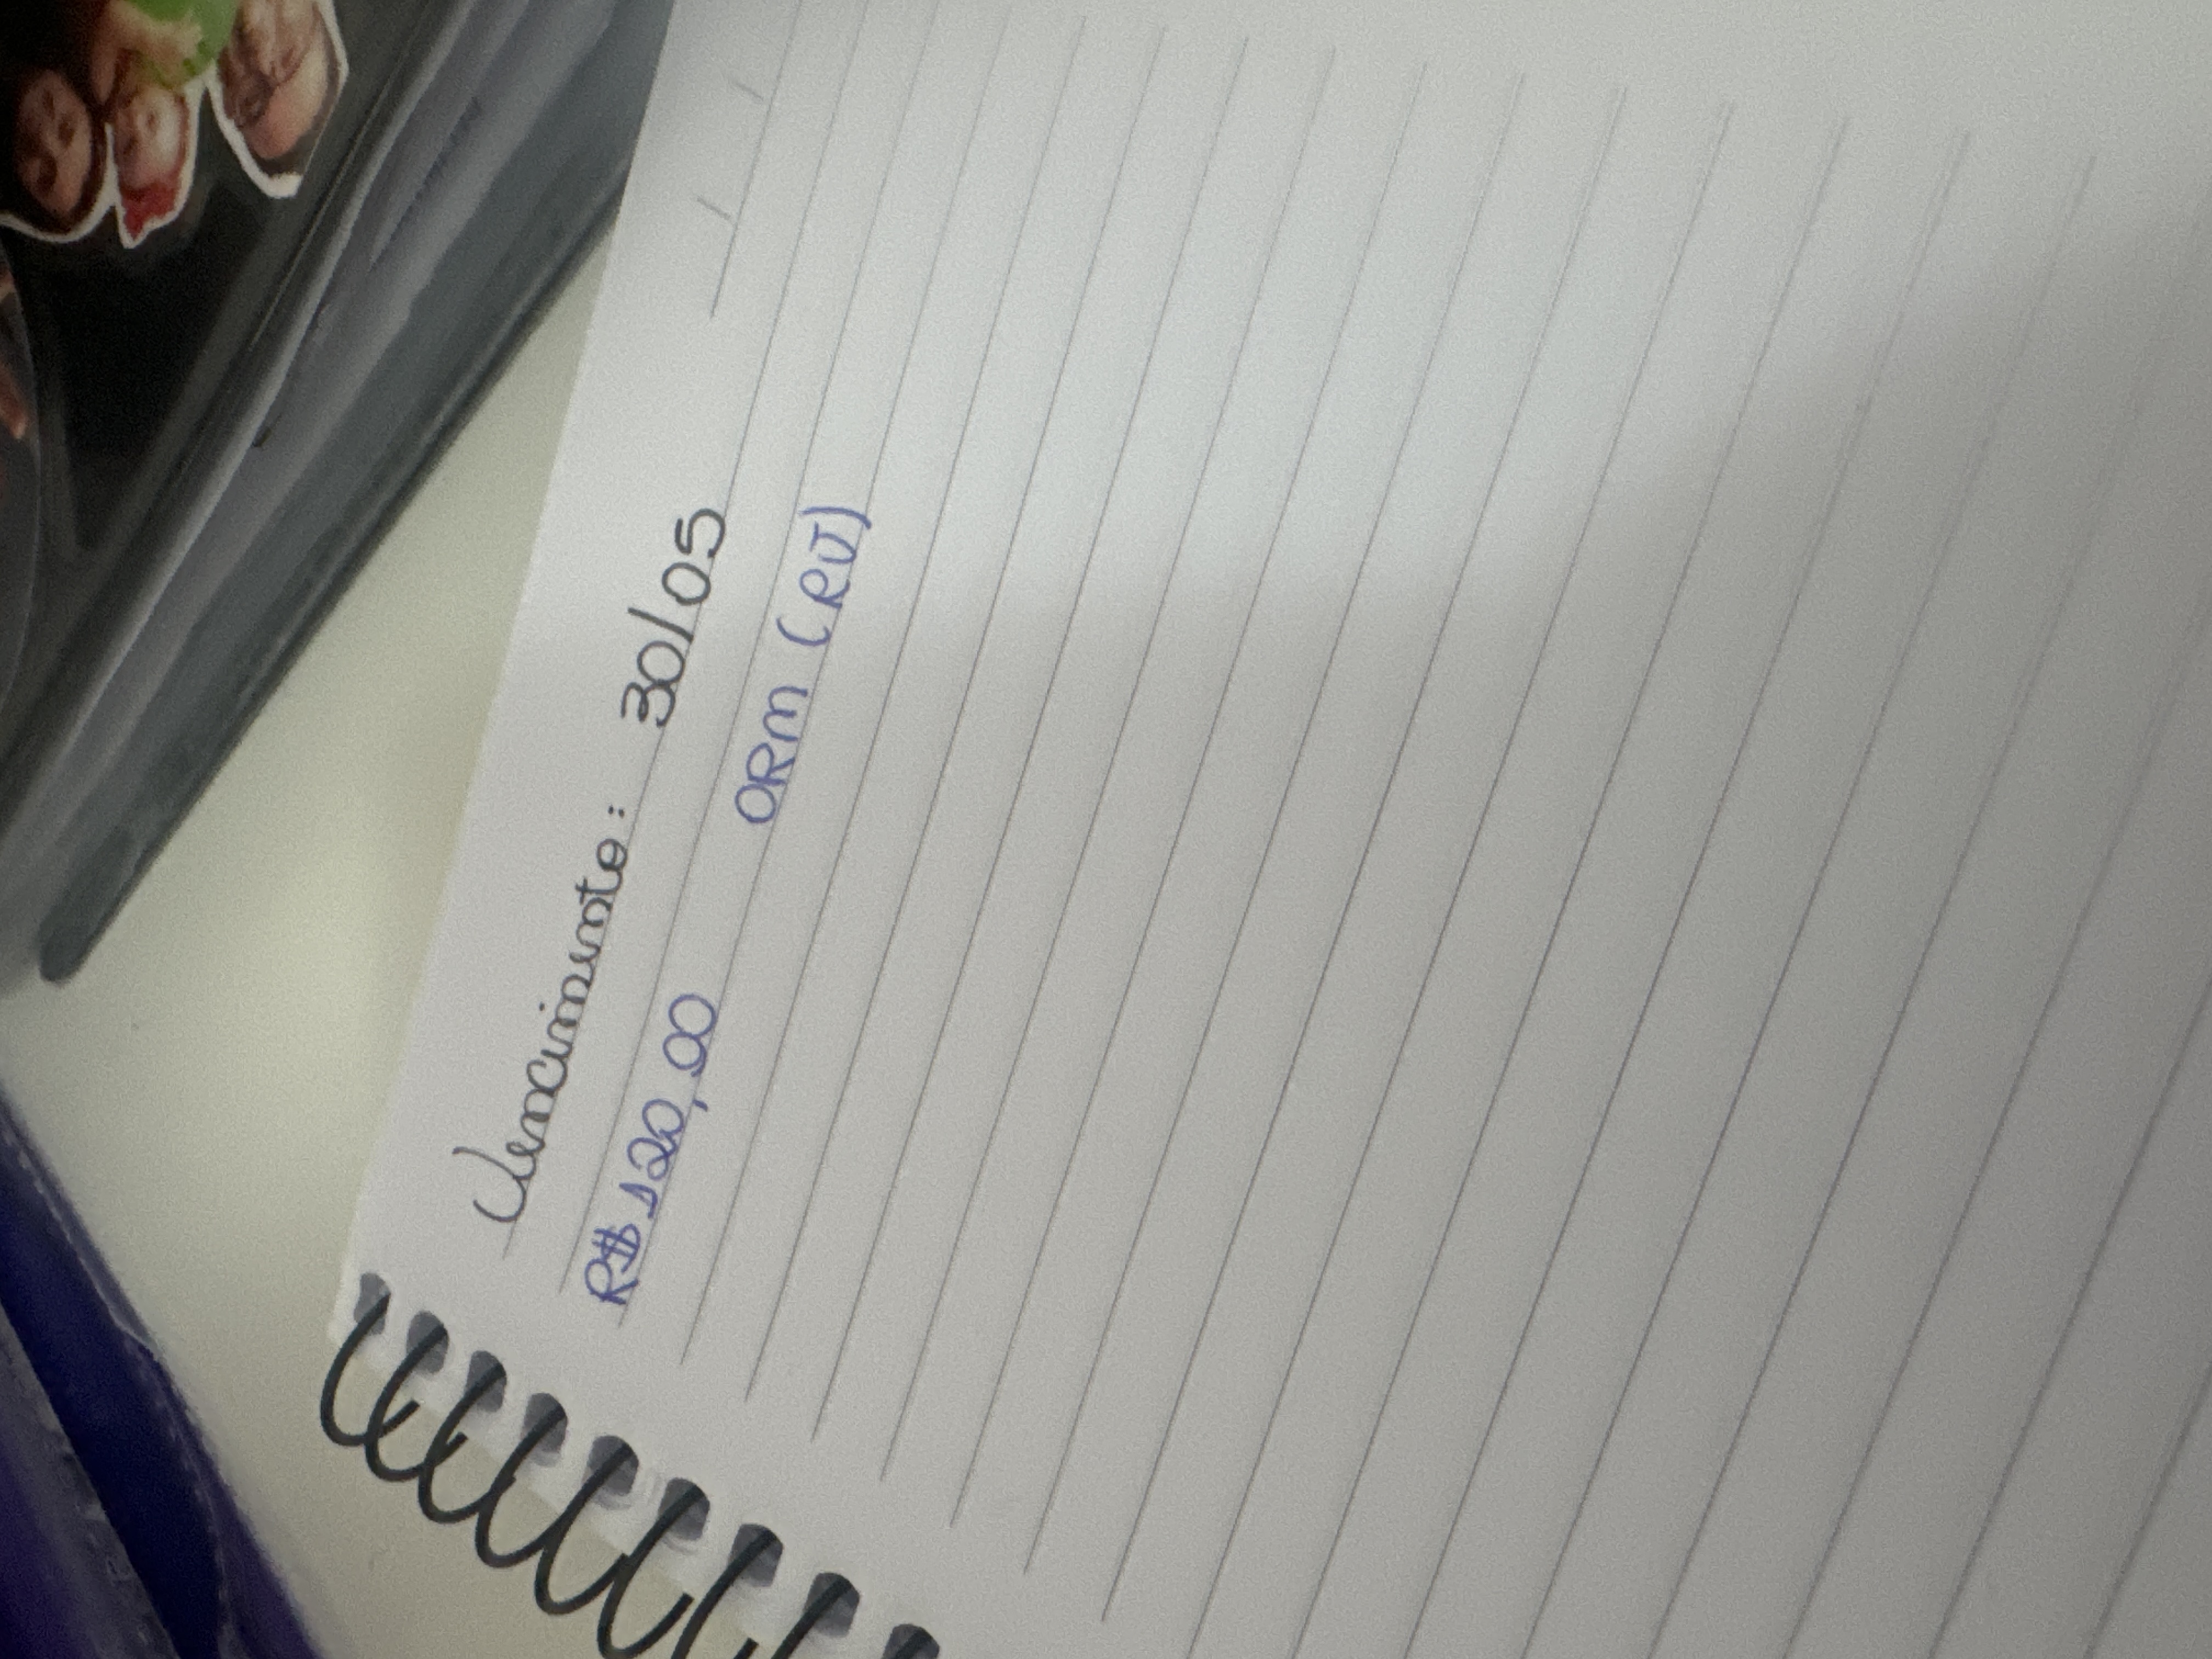 Vencimento: 30/05
R$ 120,00 ORM (RJ)